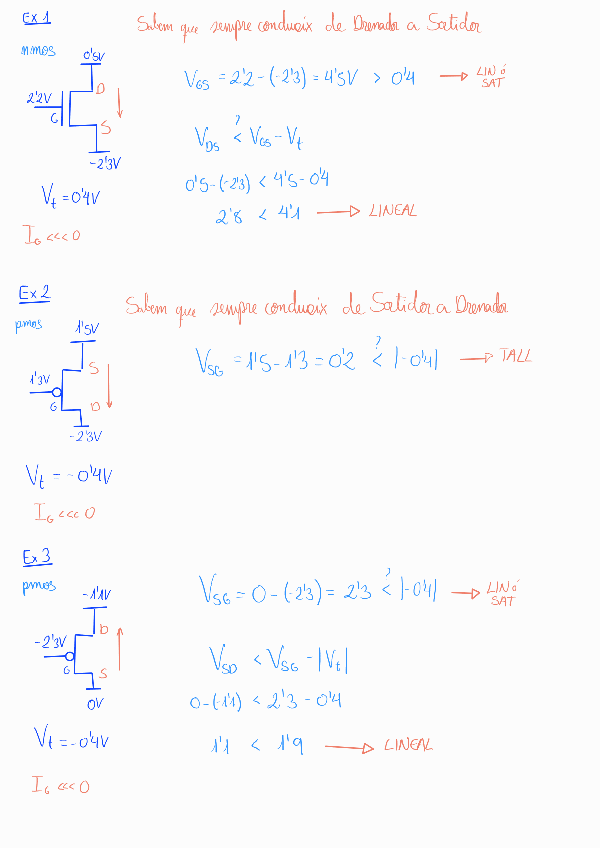 Ex 1
Sabem que sempre condueix de Drenador a Satidor
nmos
0'5V
D
2'2V
G
S
-2'3V
V_GS = 2'2 - (-2'3) = 4'5V > 0'4 → LIN ó SAT
V_DS <? V_GS - V_t
0'5 - (-2'3) < 4'5 - 0'4
2'8 < 4'1 → LINEAL
V_t = 0'4V
I_G <<< 0
Ex 2
Sabem que sempre condueix de Satidor a Drenador
pmos
1'5V
S
1'3V
G
D
-2'3V
V_SG = 1'5 - 1'3 = 0'2 <? |-0'4| → TALL
V_t = -0'4V
I_G <<< 0
Ex 3
pmos
-1'1V
D
-2'3V
G
S
0V
V_SG = 0 - (-2'3) = 2'3 <? |-0'4| → LIN ó SAT
V_SD < V_SG - |V_t|
0 - (-1'1) < 2'3 - 0'4
1'1 < 1'9 → LINEAL
V_t = -0'4V
I_G <<< 0